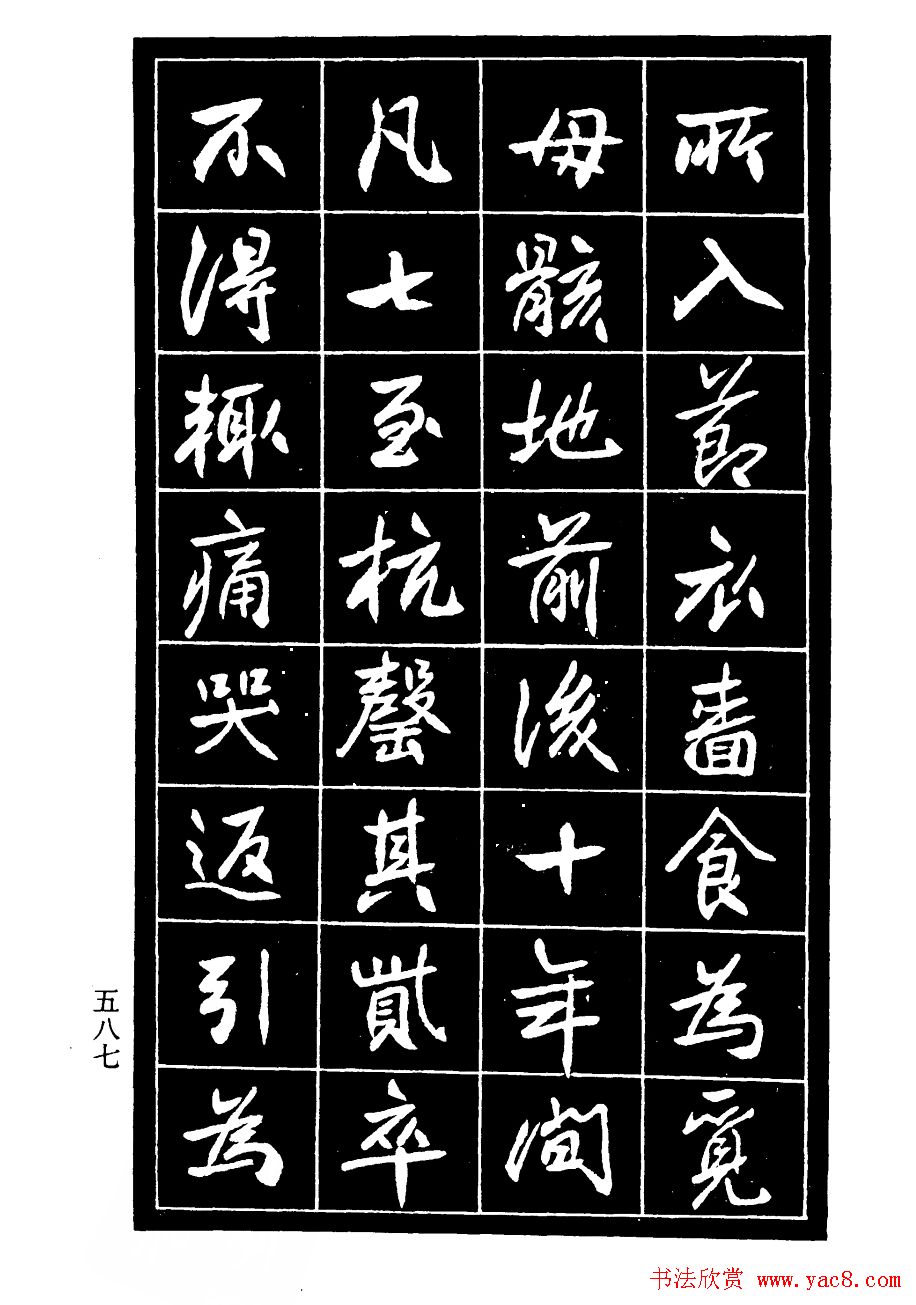 所入節衣嗇食為覓
母骸地前後十年間
凡七至杭罄其貲卒
不得輒痛哭返引為
五八七
书法欣赏 www.yac8.com